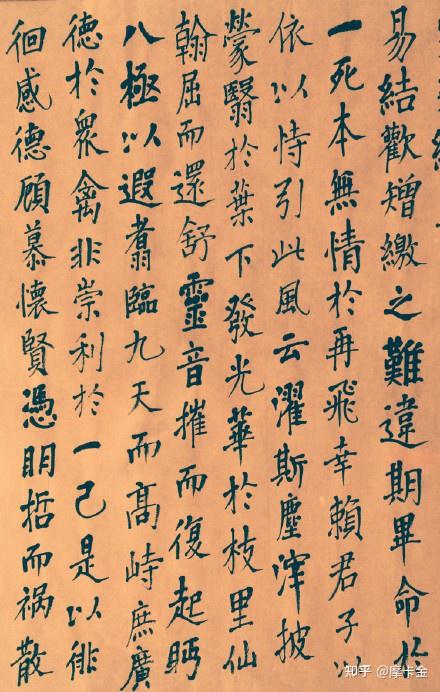 易結歡矰繳之難違期畢命於
一死本無情於再飛幸賴君子以
依以恃引此風云濯斯塵滓披
蒙翳於葉下發光華於枝里仙
翰屈而還舒靈音摧而復起眄
八極以遐翥臨九天而高峙庶廣
德於衆禽非崇利於一己是以徘
徊感德顧慕懷賢憑明哲而祸散
知乎 @摩卡金